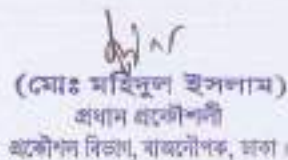 (মোঃ মহিদুল ইসলাম)
প্রধান প্রকৌশলী
প্রকৌশল বিভাগ, বাঅনৌপক, ঢাকা।